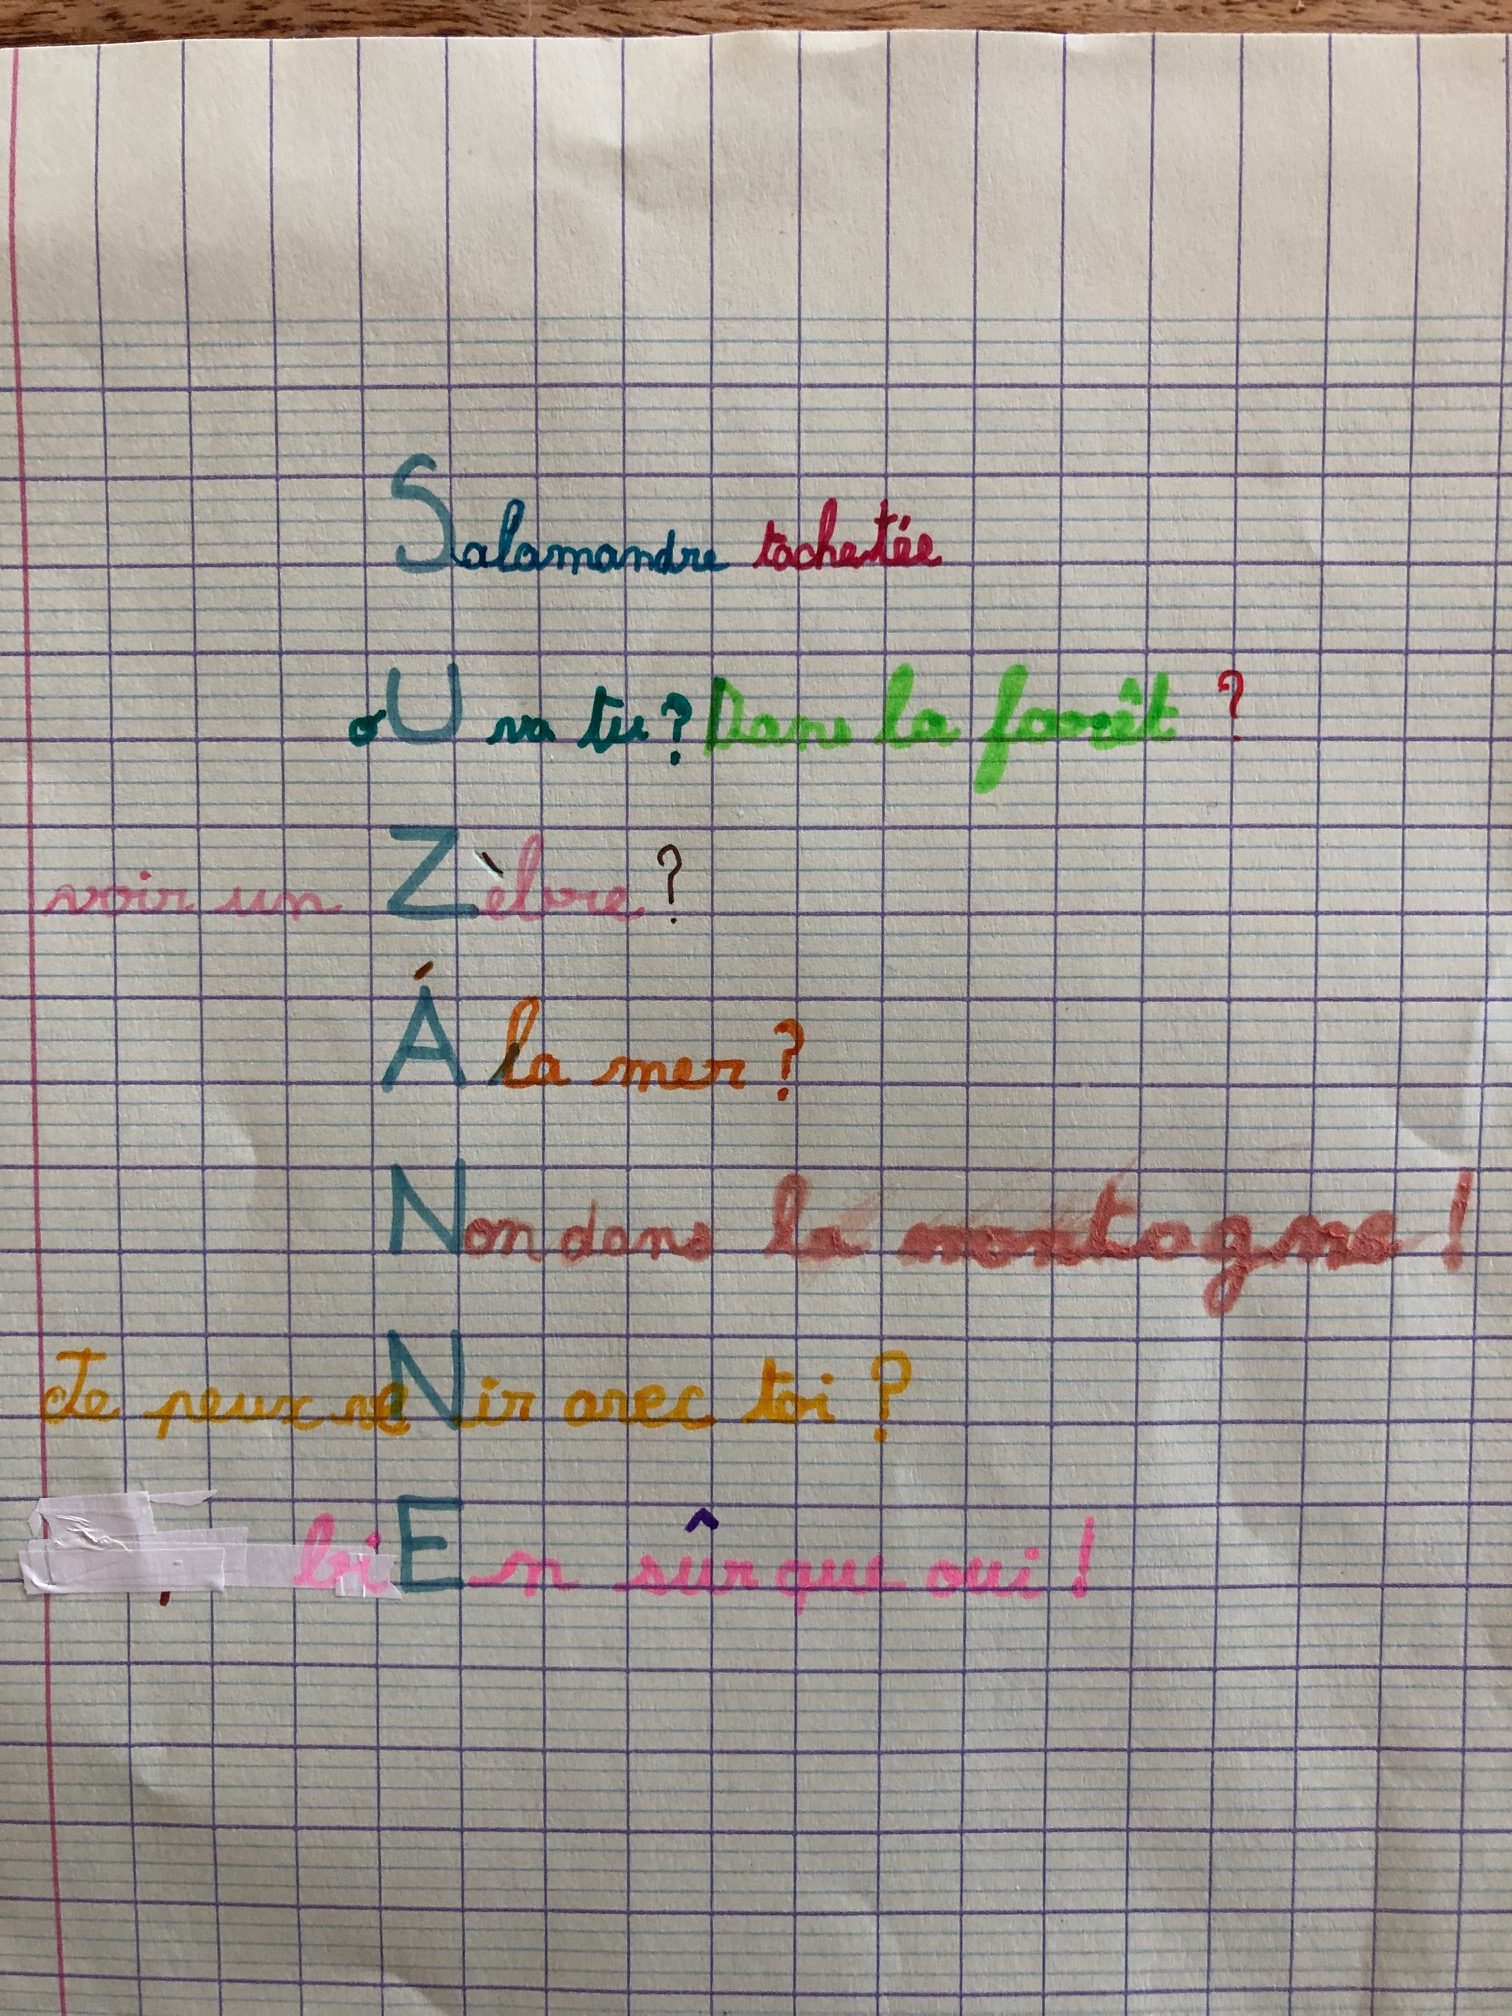 Salamandre tachetée
oU va tu ? Dans la forêt ?
voir un Zèbre ?
Á la mer ?
Non dans la montagne !
Je peux veNir avec toi ?
biEn sûr que oui !